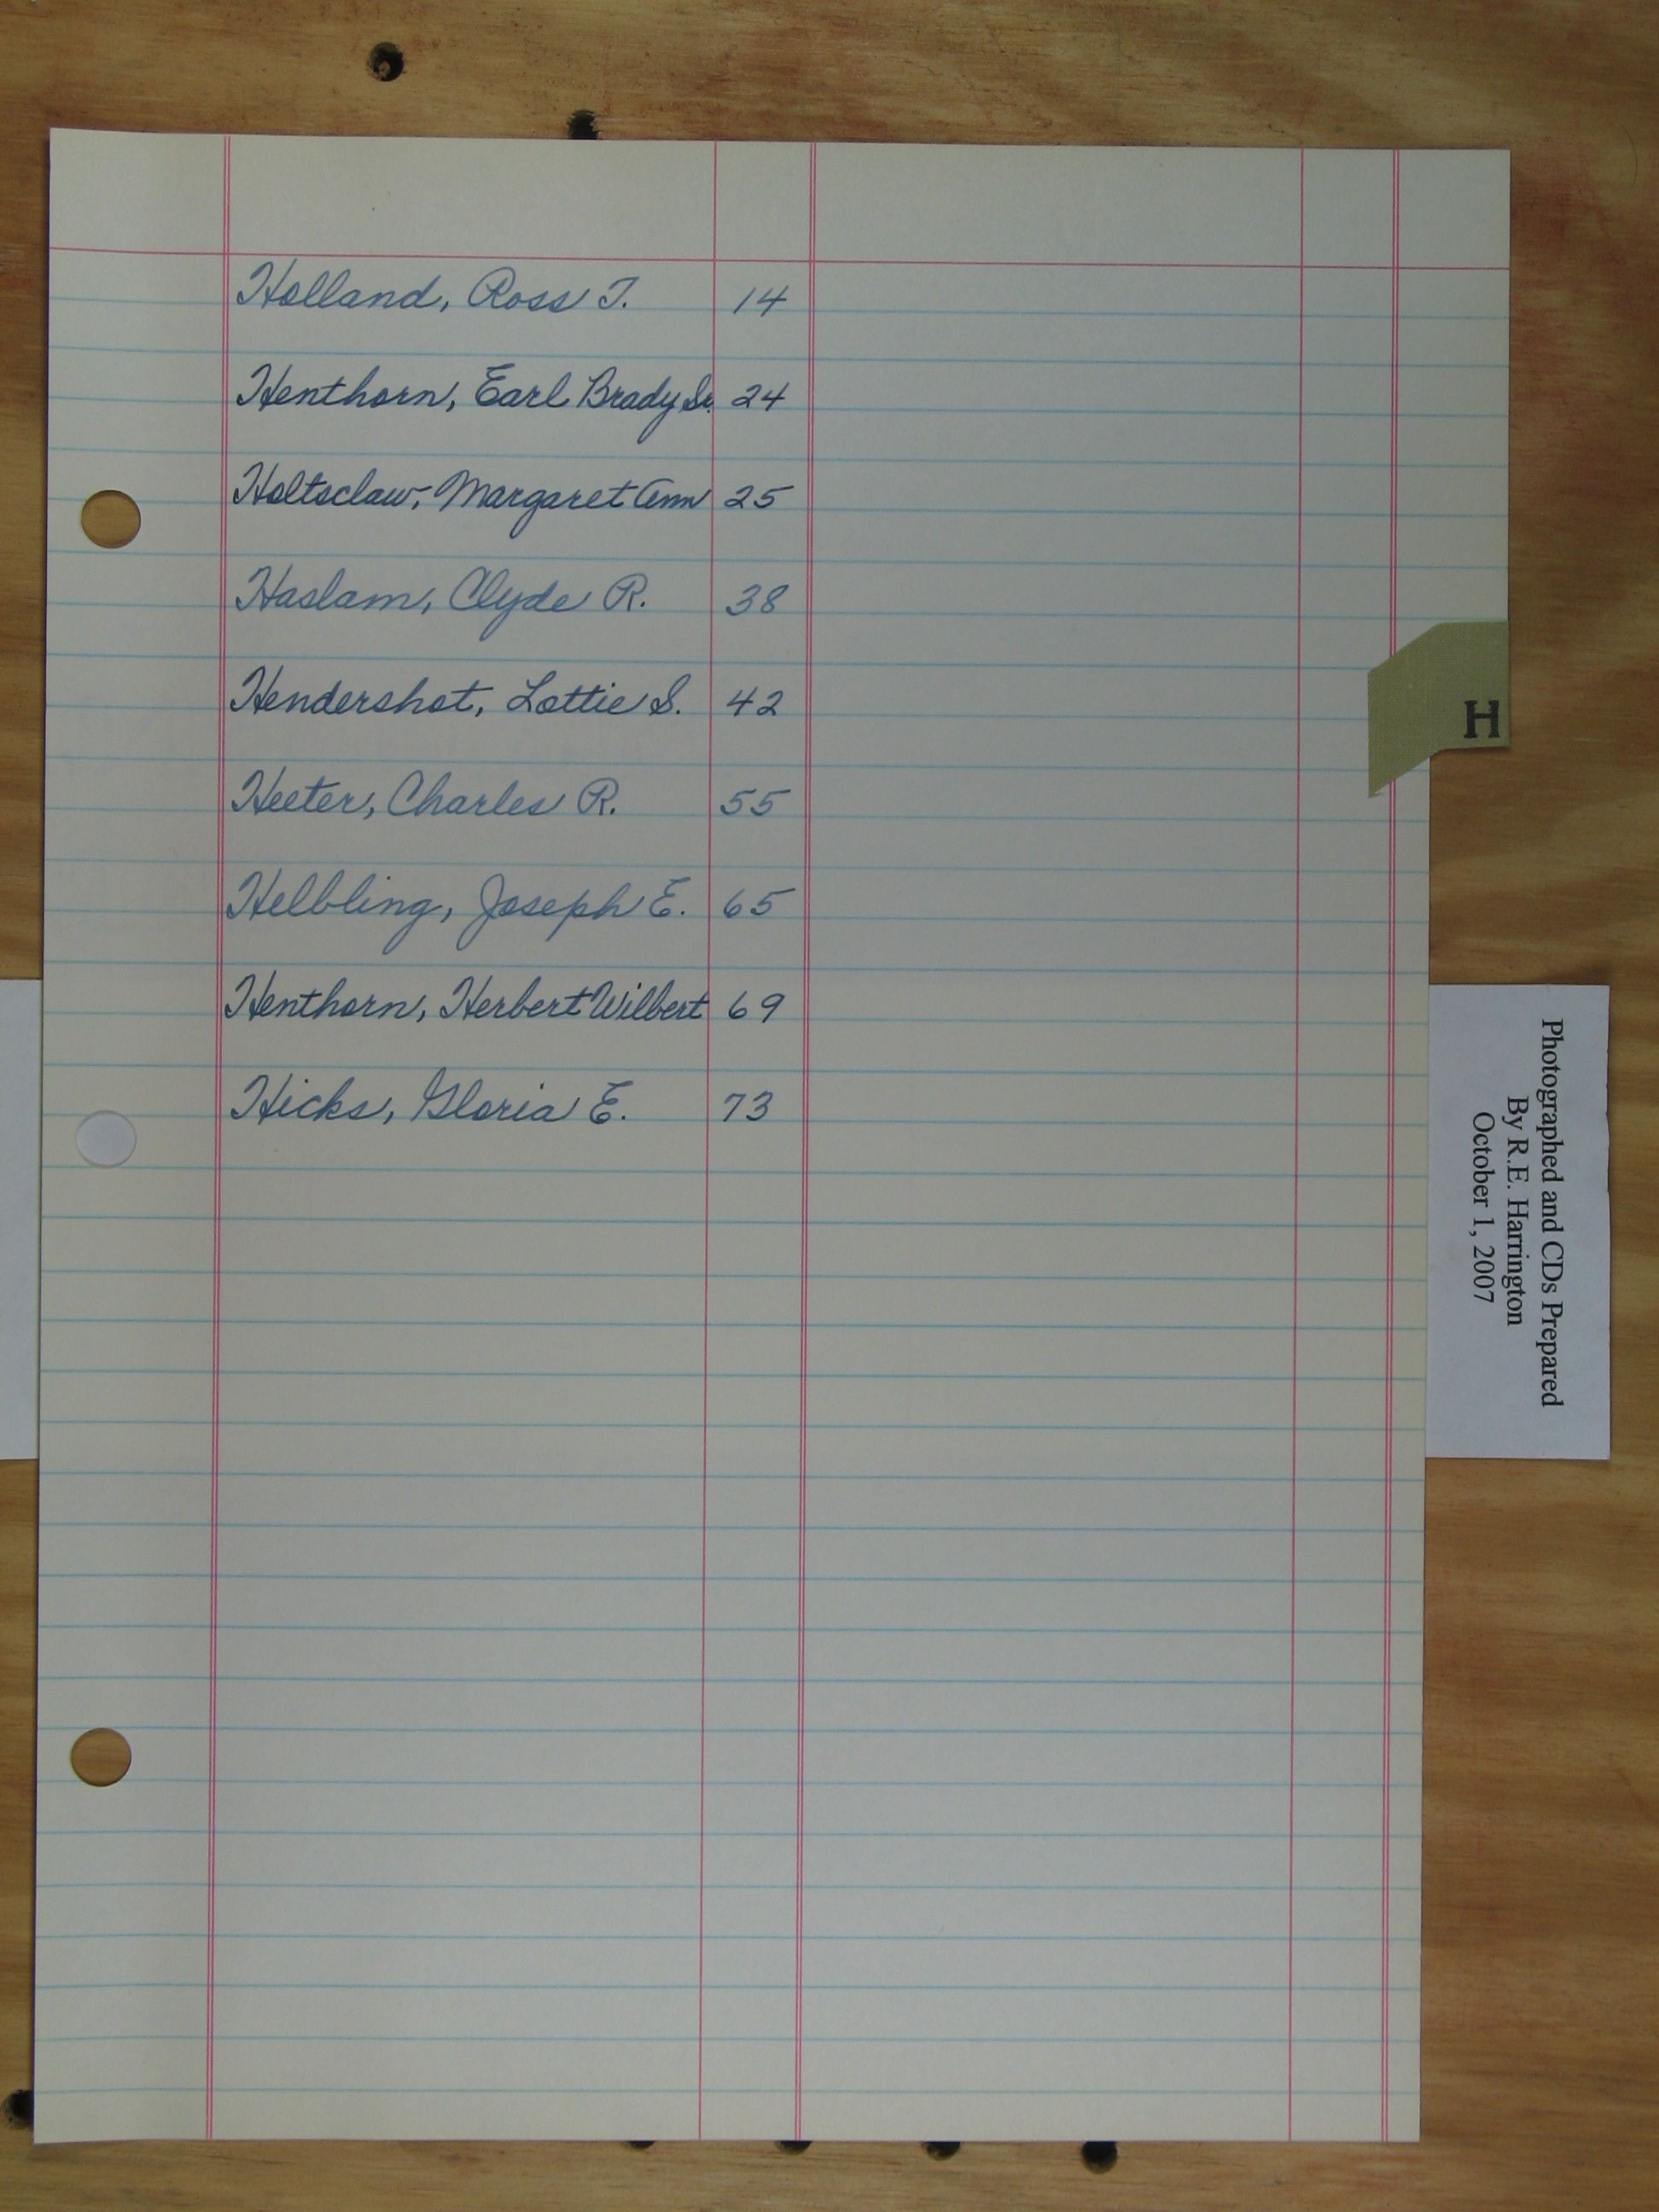 Holland, Ross T. 14
Henthorn, Earl Brady Sr. 24
Holtsclaw, Margaret Ann 25
Haslam, Clyde R. 38
Hendershot, Lottie S. 42
Heeter, Charles R. 55
Helbling, Joseph E. 65
Henthorn, Herbert Wilbert 69
Hicks, Gloria E. 73
H
Photographed and CDs Prepared
By R.E. Harrington
October 1, 2007